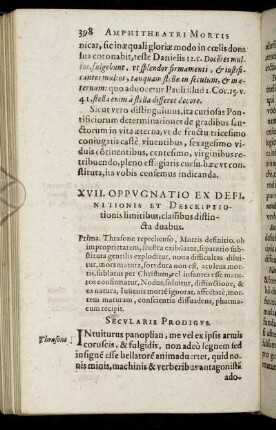 398 AMPHITHEATRI MORTIS
nicat, sic inæquali gloriæ modo in cœlis dona
sua coronabit, teste Danielis 12. c. Docentes mul-
tos, fulgebunt, vt splendor firmamenti, & iustifi-
cantes multos, tanquam stellæ in seculum, & in æ-
ternum: quo aduocetur Paulí illud 1. Cor. 15. v.
41. stella enim à stella differet decore.
Sicut vero distinguimus, ita curiosas Pon-
tificiorum determinationes de gradibus san-
ctorum in vita æterna, vt de fructu tricesimo
coniugatis castè viuentibus, sexagesimo vi-
duis cōtinentibus, centesimo, virginibus re-
tribuendo, pleno effigiaris curiu- hæc vt con-
stituta, ita vobis censenda indicamus.
XVII. OPPVGNATIO EX DEFI-
NITIONIS ET DESCRIPTIO-
tionis limitibus, classibus distin-
cta duabus.
Prima. Thrasone reprehenso, Mortis definitio, ob
improprietatem, frustra exibilatur, separatio sub-
stituta gentilis exploditur, noua difficulras dilui-
tur, moranatura, sordura non est, aculeus mor-
tis, sublatus per Christum, vel infantes esse mata-
xos confirmatur, Nodus, soluitur, distinctione, &
ex natura, Iuuenis mortē ignorat, affectare, mor-
tem maturam, conscientia dissuadens, pharma-
cum recipit.
SECVLARIS PRODIGVS.
Thrasona INtuiturus panoplian, me vel ex ipsis armis
coruscis, & fulgidis, non adeò segnem sed
insigné esse bellatorē animaduertet, quid no-
uis minis, machinis & verberibus antagonistā
ado-